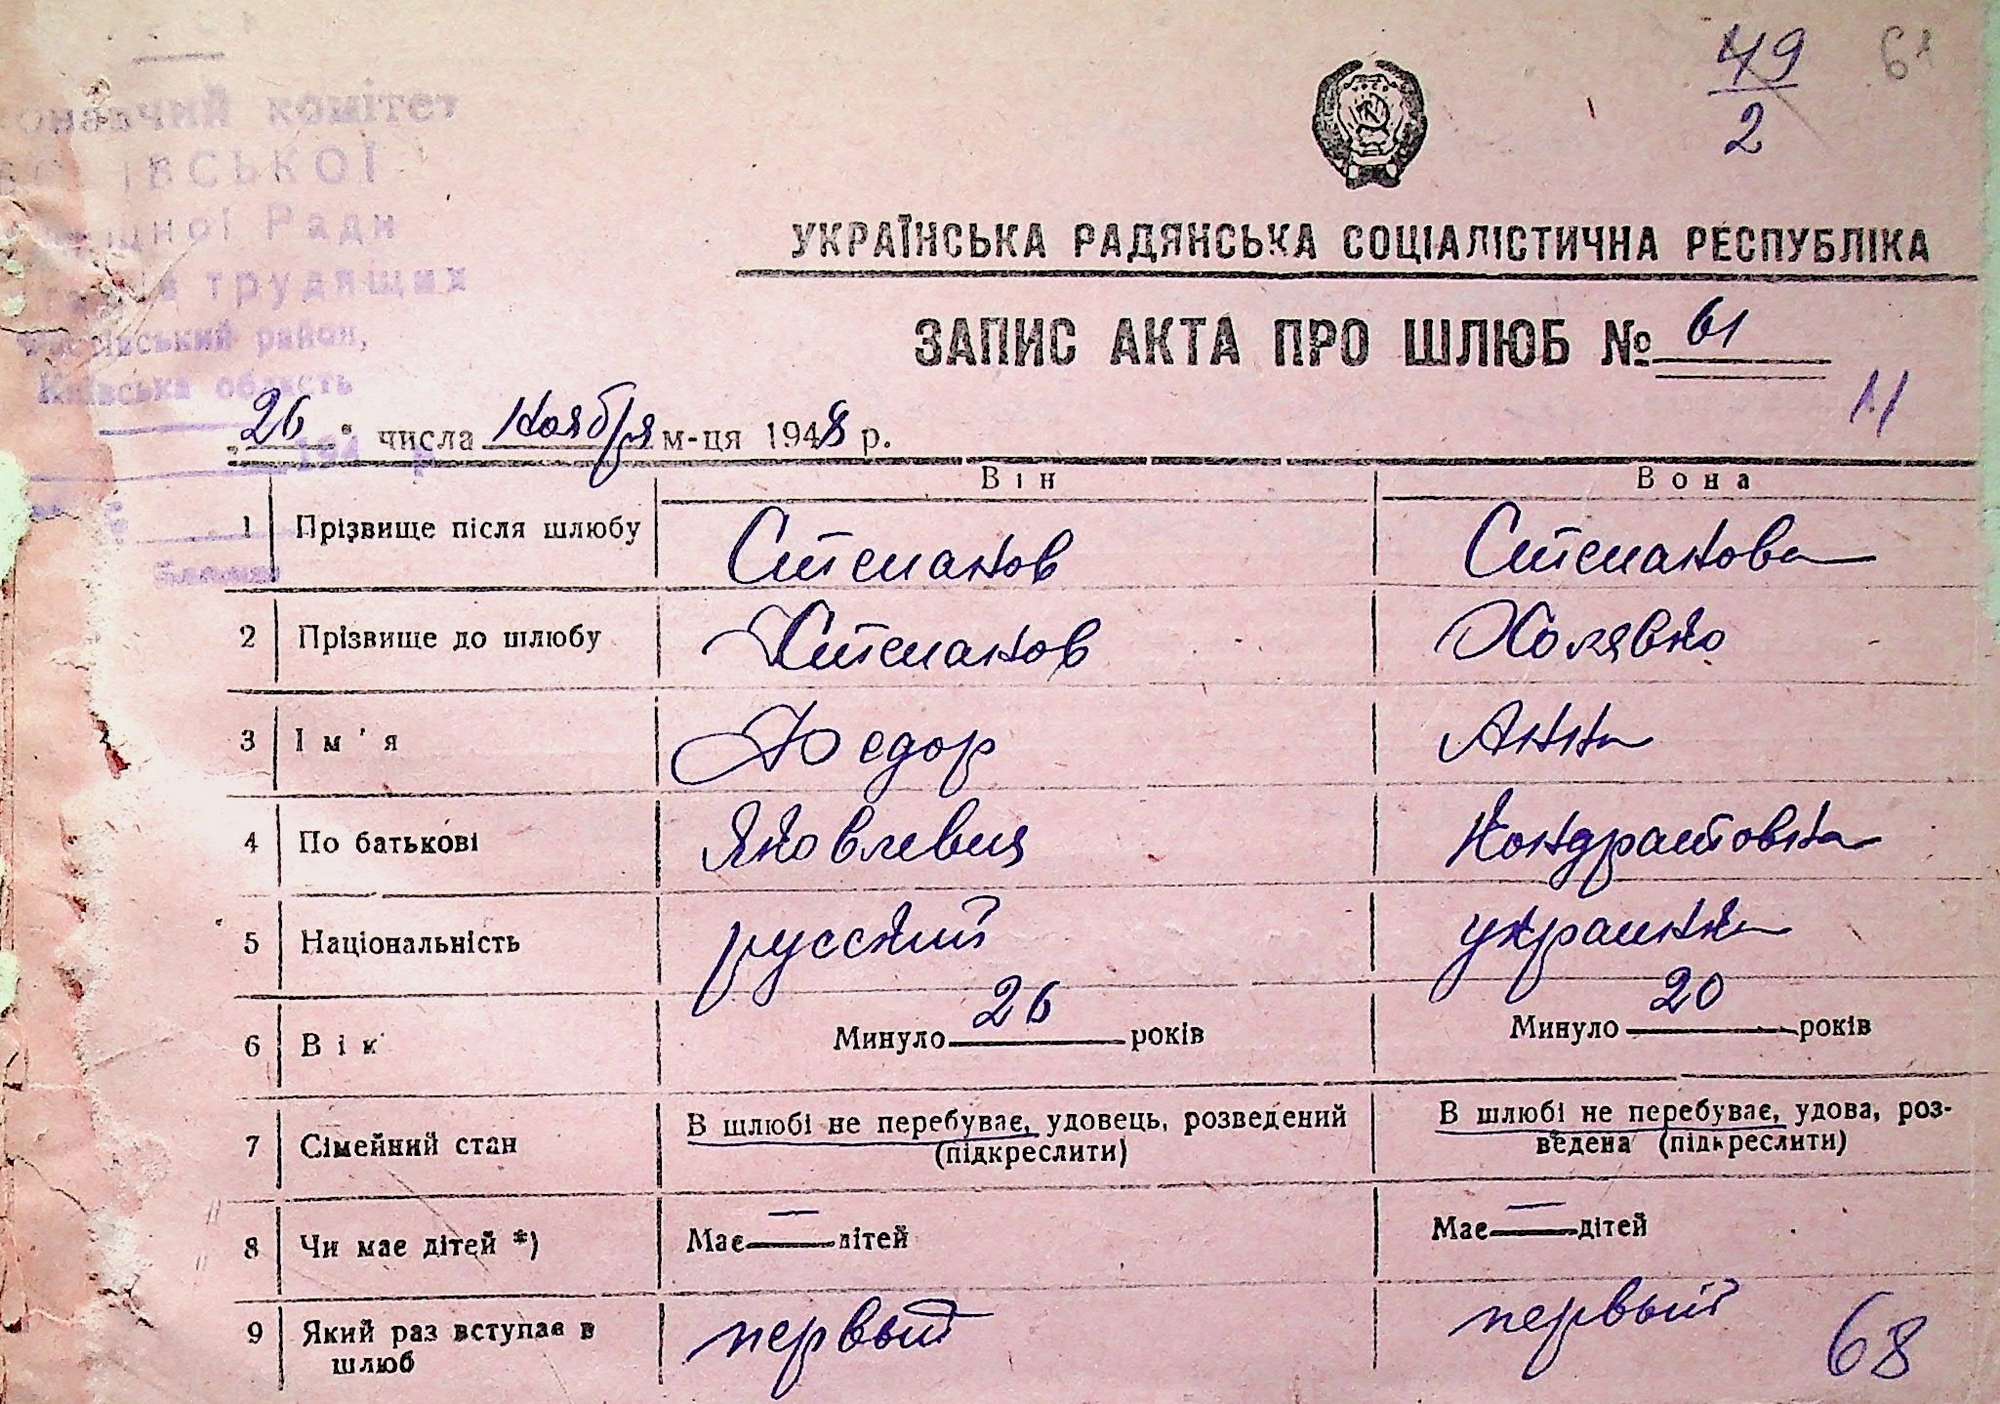 49
2
61
комітет
ІВСЬКОЇ
Ради
трудящих
район,
Київська область
УКРАЇНСЬКА РАДЯНСЬКА СОЦІАЛІСТИЧНА РЕСПУБЛІКА
ЗАПИС АКТА ПРО ШЛЮБ № 61
11
„26“ числа ноября м-ця 1948 р.
194 р.
Він Вона
1 Прізвище після шлюбу Степанов Степанова
2 Прізвище до шлюбу Степанов Холявко
3 Ім'я Федор Анна
4 По батькові Яковлевич Кондратовна
5 Національність русский украинка
6 Вік Минуло 26 років Минуло 20 років
7 Сімейний стан В шлюбі не перебуває, удовець, розведений (підкреслити) В шлюбі не перебуває, удова, роз-
ведена (підкреслити)
8 Чи має дітей *) Має — дітей Має — дітей
9 Який раз вступає в шлюб первый первый
68